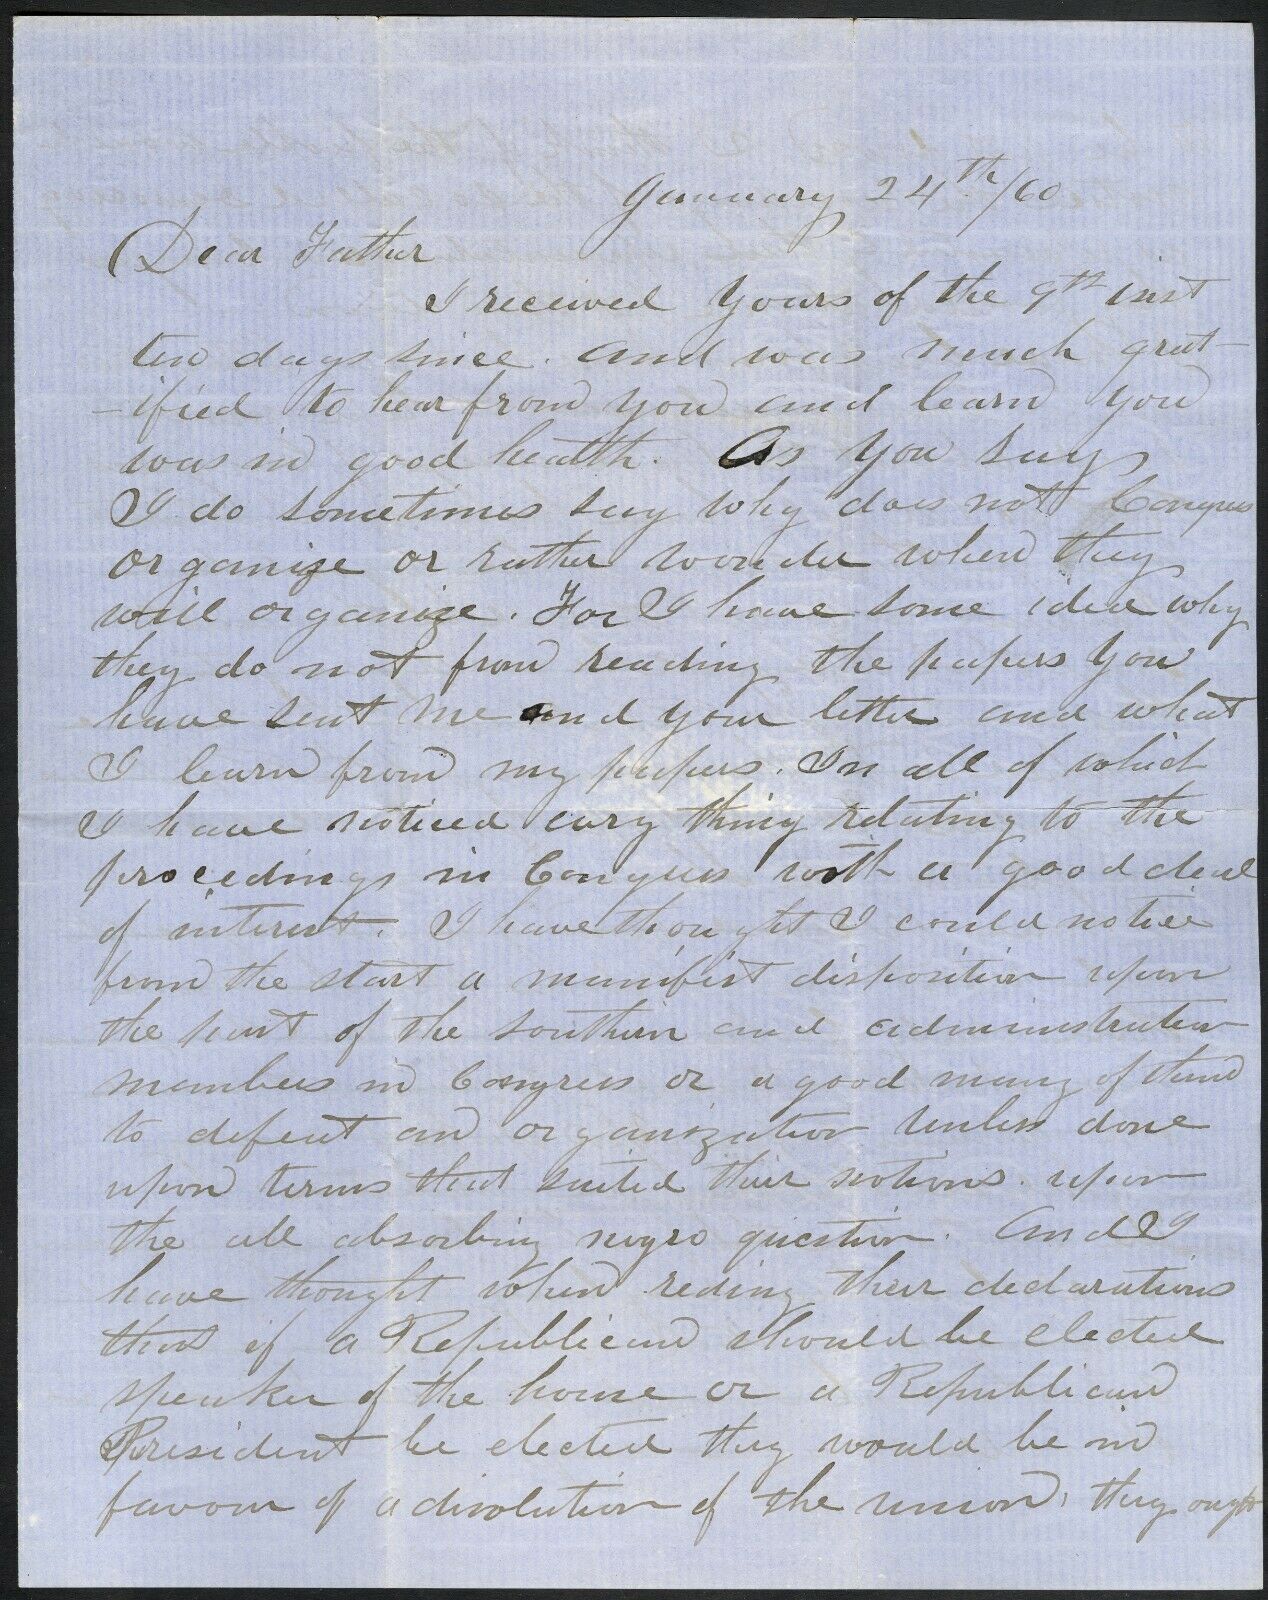 January 24th/60
Dear Father
I received yours of the 9th inst
ten days since. and was much grat-
-ified to hear from you and learn you
was in good health. As you say
I do sometimes say why does not Congress
organize or rather wonder when they
will organize. For I have some idea why
they do not from reading the papers you
have sent me and your letter and what
I learn from my papers. In all of which
I have noticed evry thing relating to the
proceedings in Congress with a good deal
of interest. I have thought I could notice
from the start a manifest disposition upon
the part of the southern and administration
members in Congress or a good many of them
to defeat an organization unless done
upon terms that suited their notions upon
the all absorbing negro question. And I
have thought when reding their declarations
that if a Republican should be elected
speaker of the house or a Republican
President be elected they would be in
favour of a disolution of the union, they ought